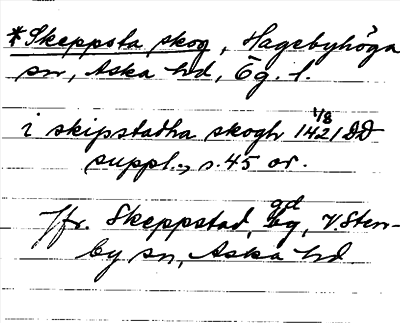 *Skeppsta skog, Hagebyhöga
sn, Aska hd, Ög. l.
i skipstadha skogh 1/8 1421 DD
suppl., s. 45 or.
Jfr. Skeppstad, gd, V. Sten-
by sn, Aska hd